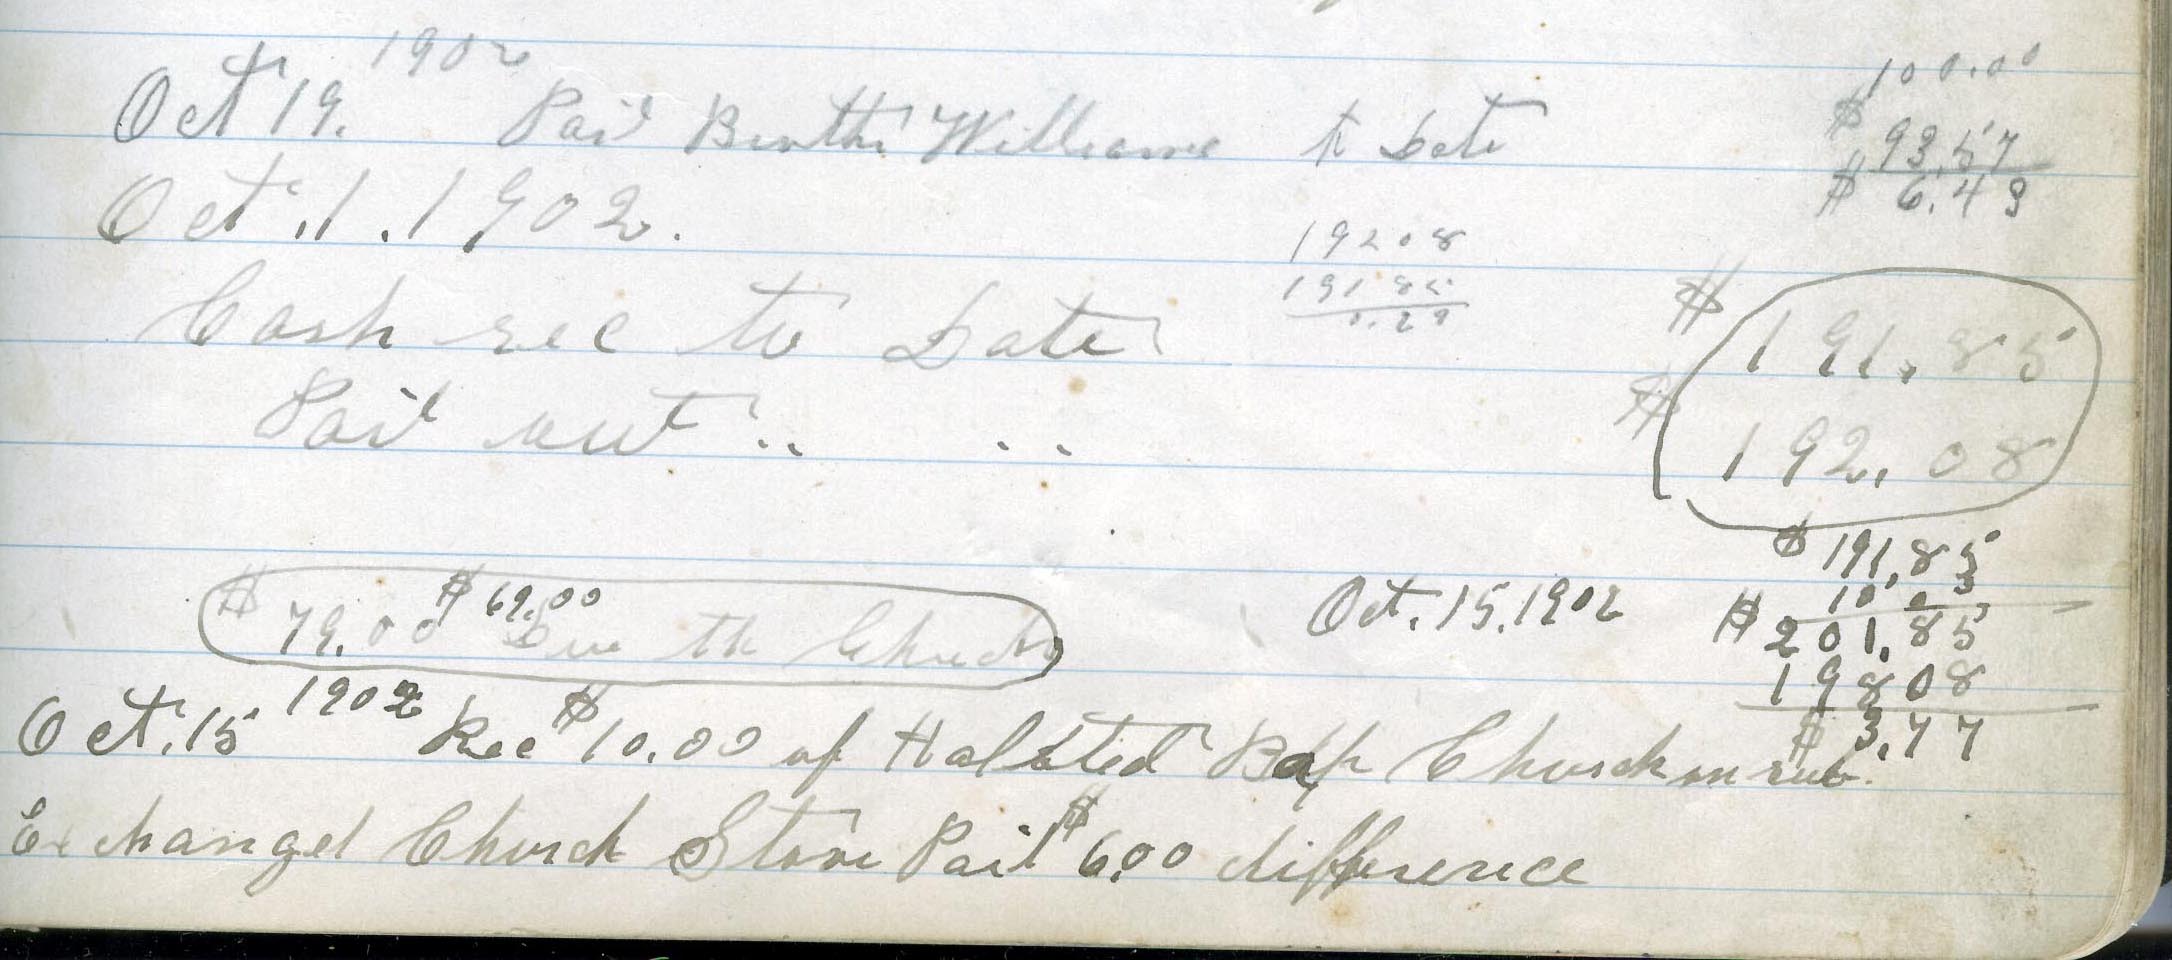 1902
Oct 19. Paid Brother Williams to Date
100.00
$ 93.57
$ 6.43
Oct. 1. 1902.
19208
19185
0.23
Cash rec to Date $ 191.85
Paid out " " $ 192.08
$ 191.85
10.00
$ 79.00 $ 69.00 Due the Church Oct. 15. 1902 $ 201.85
19808
$ 3.77
Oct. 15 1902 Rec $10.00 of Halsted Bap Church on rent.
Exchanged Church Stove Paid $6.00 difference